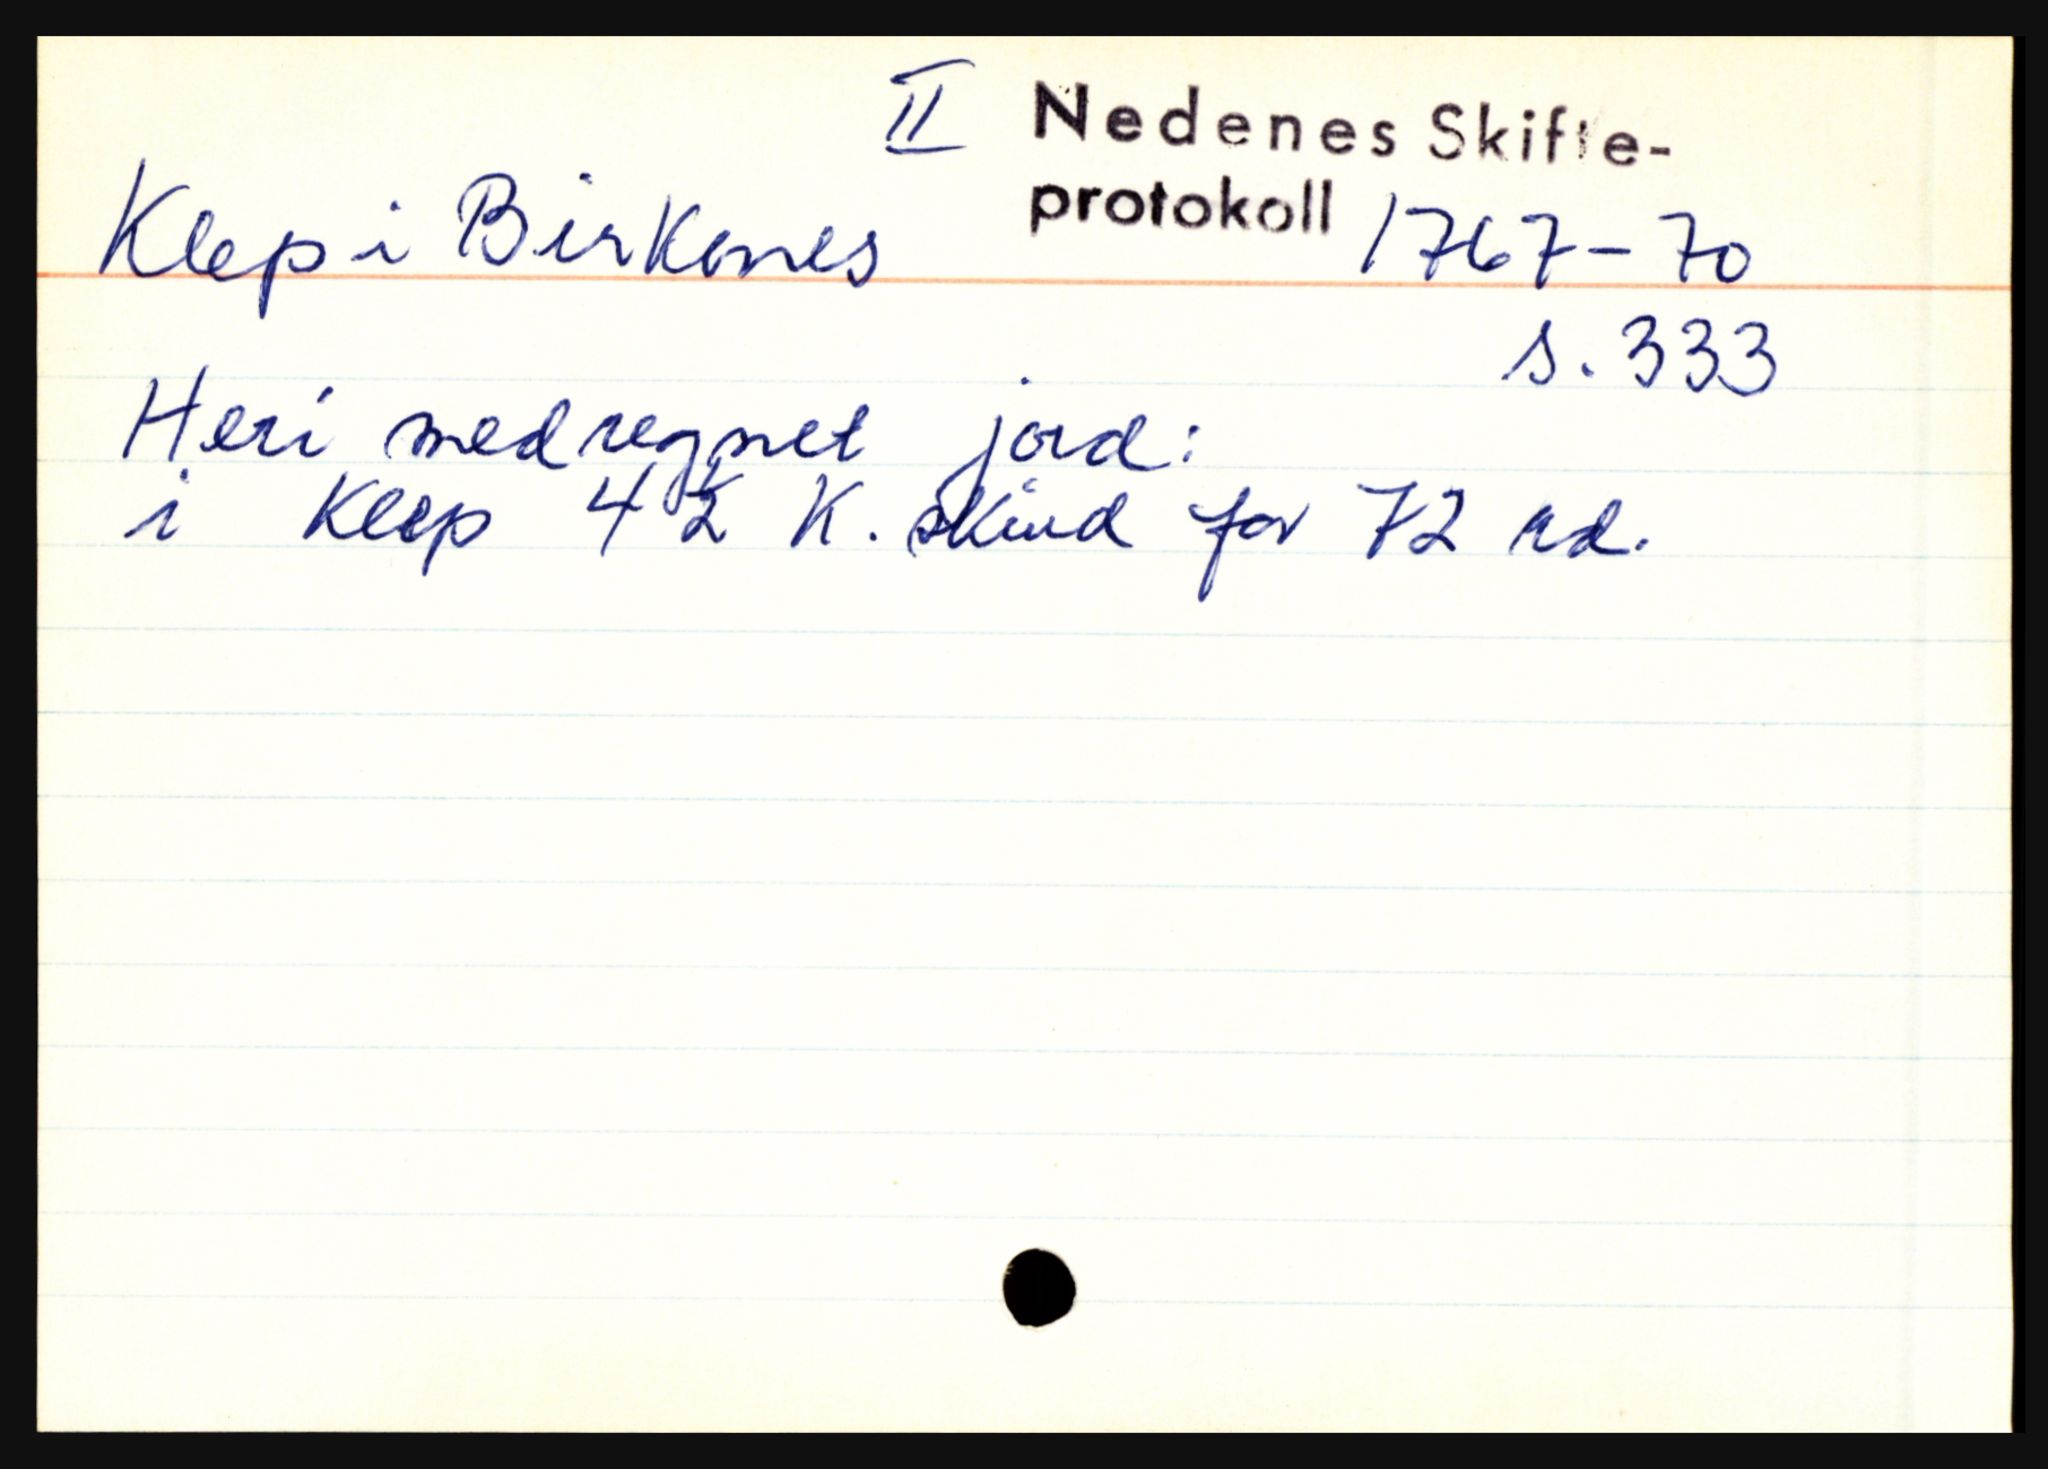 II Nedenes Skifte-
Klep i Birkenes protokoll 1767-70
s. 333
Heri medregnet jord:
i Klep 4½ K. skind for 72 rd.